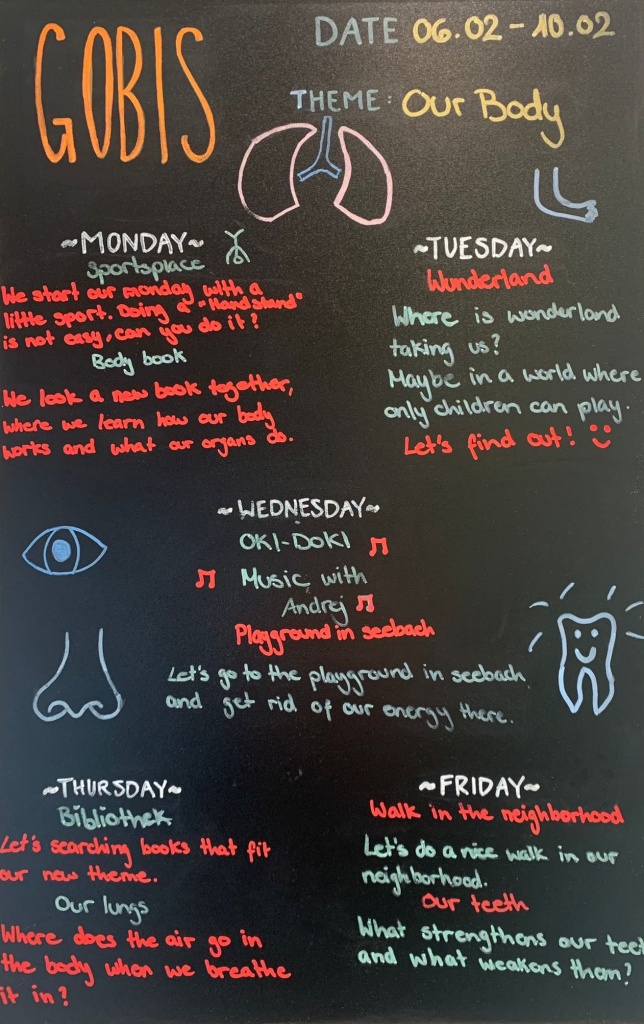 GOBIS
DATE 06.02 - 10.02
THEME: Our Body
~MONDAY~
Sportsplace
We start our monday with a
little sport. Doing a "Handstand"
is not easy, can you do it?
Body book
We look a new book together,
where we learn how our body
works and what our organs do.
~TUESDAY~
Wunderland
Where is wonderland
taking us?
Maybe in a world where
only children can play.
Let's find out!
~WEDNESDAY~
OKI-DOKI
Music with
Andrej
Playground in seebach
Let's go to the playground in seebach
and get rid of our energy there.
~THURSDAY~
Bibliothek
Let's searching books that fit
our new theme.
Our lungs
Where does the air go in
the body when we breathe
it in?
~FRIDAY~
Walk in the neighborhood
Let's do a nice walk in our
neighborhood.
Our teeth
What strengthens our teet
and what weakens them?